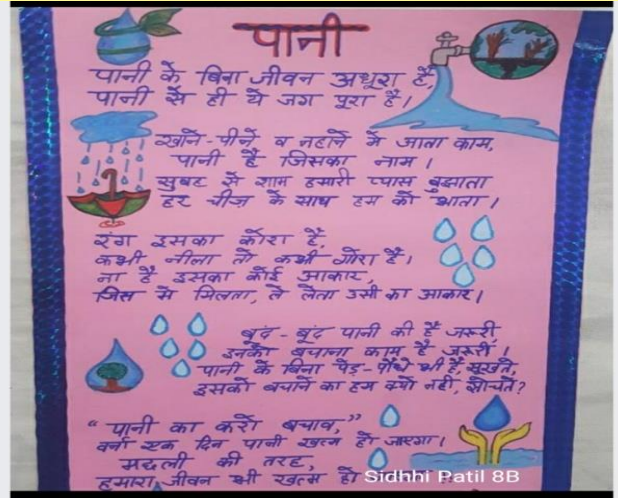 पानी
पानी के बिना जीवन अधूरा है,
पानी से ही ये जग पूरा है।
खाने-पीने व नहाने में आता काम,
पानी है जिसका नाम।
सुबह से शाम हमारी प्यास बुझाता
हर चीज़ के साथ हम को भाता।
रंग इसका कोरा है,
कभी नीला तो कभी गोरा है।
ना है इसका कोई आकार,
जिस में मिलता, ले लेता उसी का आकार।
बूंद-बूंद पानी की है जरूरी,
इनको बचाना काम है जरूरी।
पानी के बिना पेड़-पौधे भी है, सूखते,
इसको बचाने का हम क्यों नही, सोचते?
"पानी का करो बचाव,"
वर्ना एक दिन पानी खत्म हो जाएगा।
मछली की तरह,
हमारा जीवन भी खत्म हो
Sidhhi Patil 8B